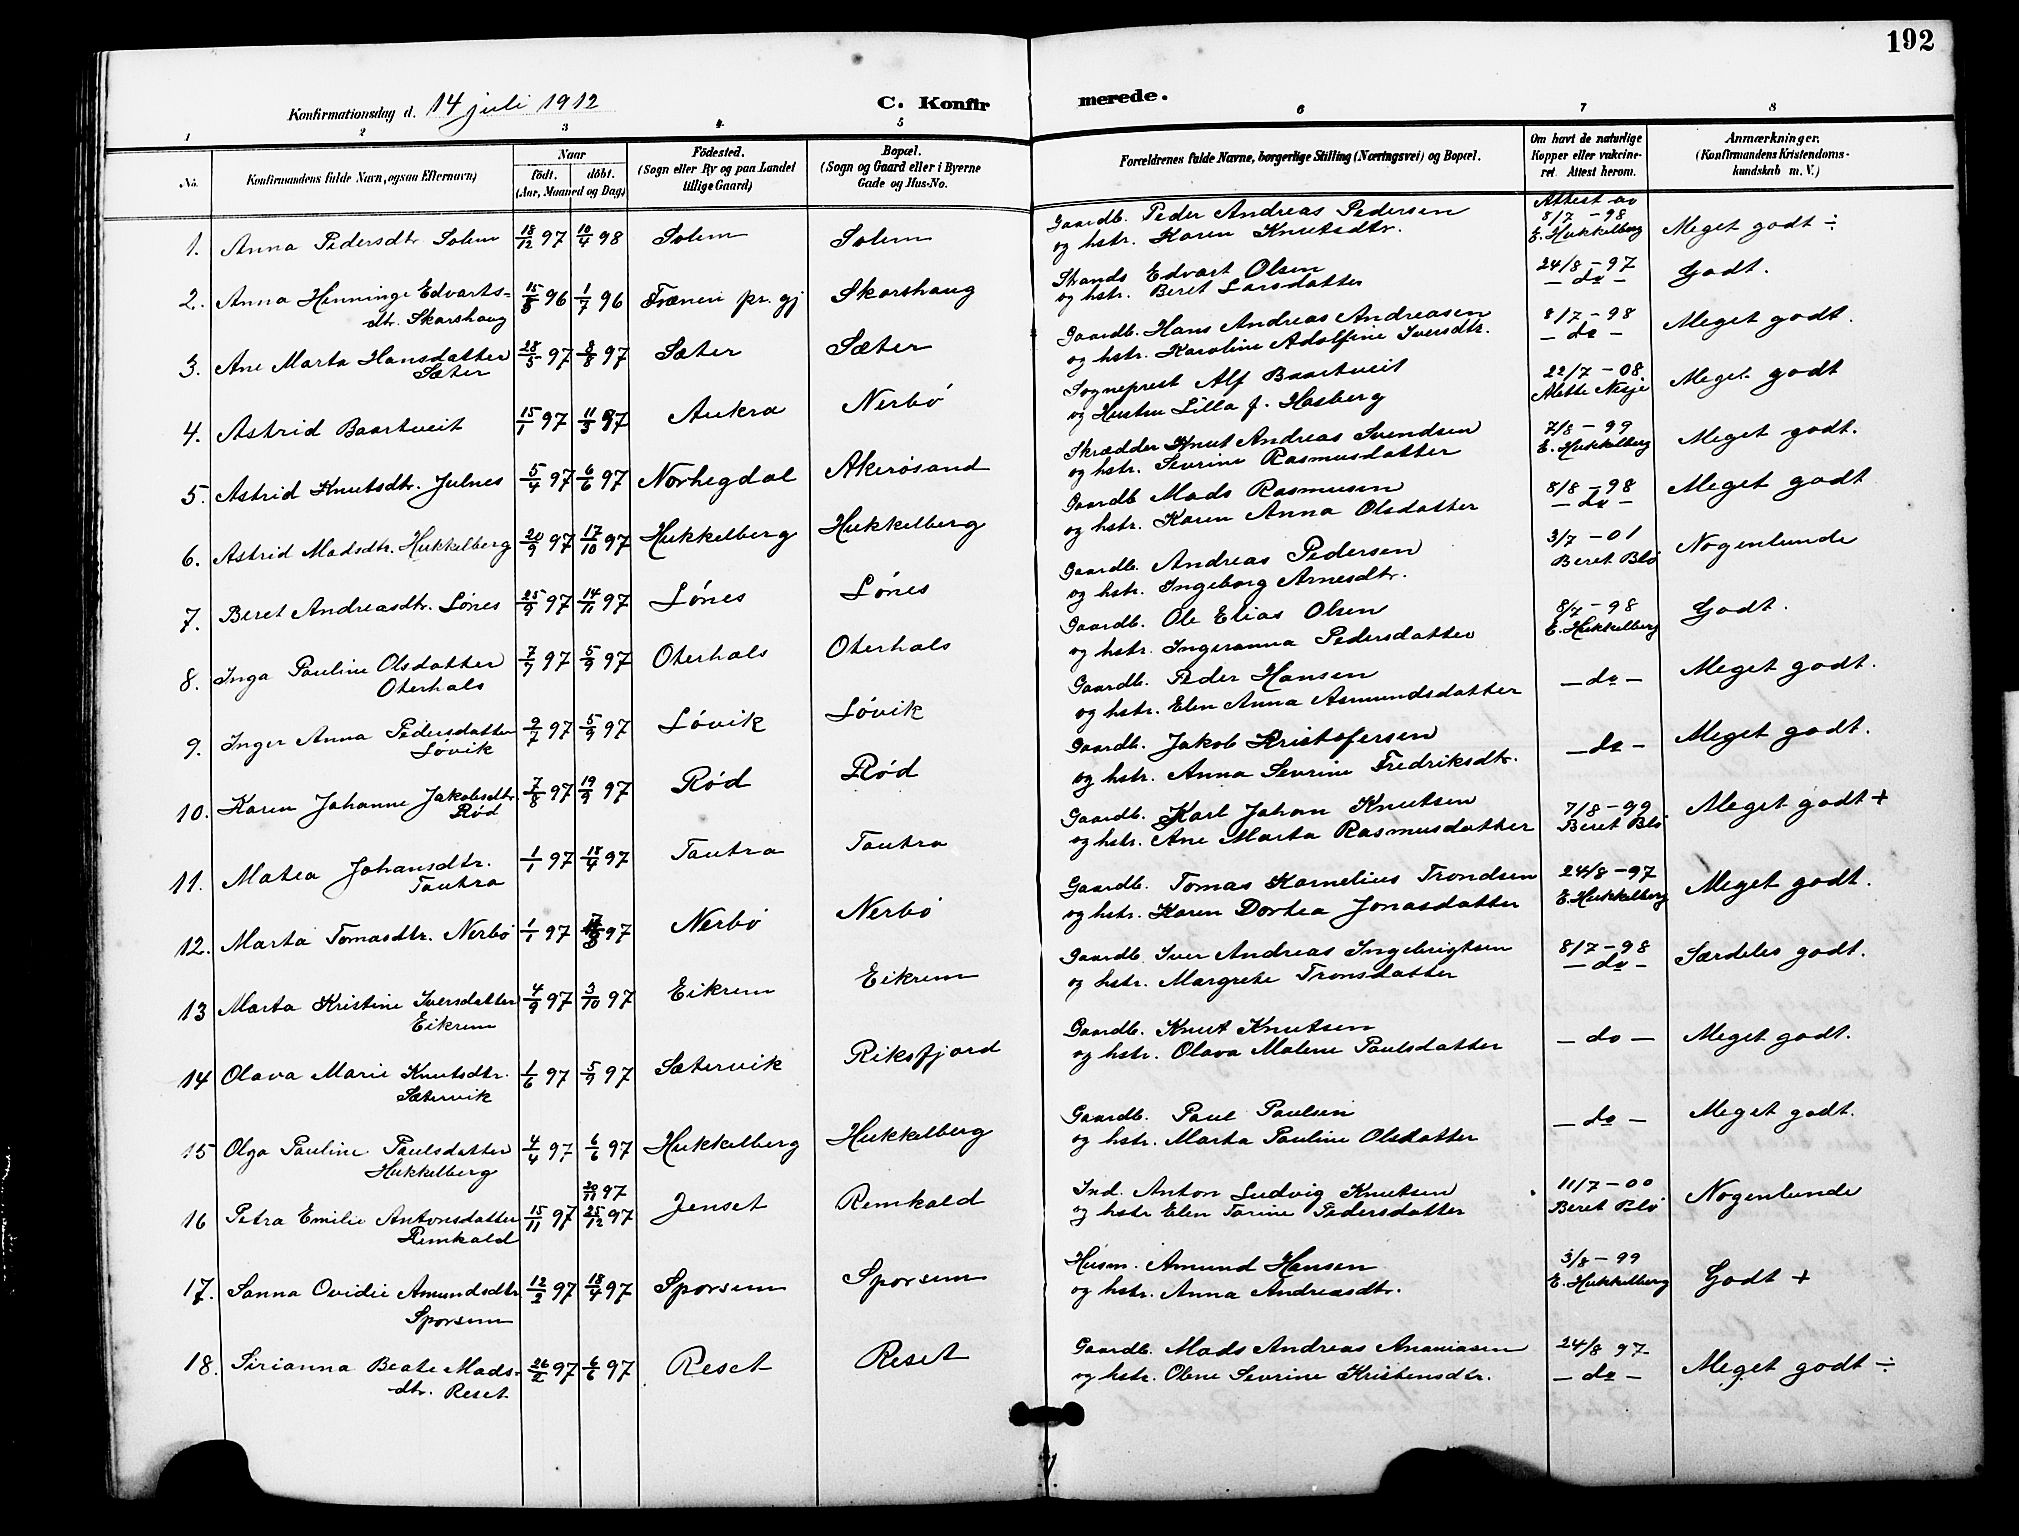 192
Konfirmationsdag d. 14 juli 1912
C. Konfirmerede.
1 2 3 4 5 6 7 8
No.
Konfirmandens fulde Navn, ogsaa Efternavn)
Naar
födt. döbt.
(Aar, Maaned og Dag)
Födested.
(Sogn eller By og paa Landet
tillige Gaard)
Bopæl.
(Sogn og Gaard eller i Byerne
Gade og Hus-No.
Forældrenes fulde Navne, borgerlige Stilling (Næringsvei) og Bopæl.
Om havt de naturlige
Kopper eller vakcine-
ret. Attest herom.
Anmærkninger.
(Konfirmandens Kristendoms-
kundskab m. V.)
1. Anna Pedersdtr. Solem 18/12 97 10/4 98 Solem Solem
Gaardb. Peder Andreas Pedersen
og hstr. Karen Knutsdtr.
Attest av
8/7 - 98
E. Hukkelberg
Meget godt ÷
2. Anna Henninge Edvarts-
dtr. Skarshaug
15/5 96 1/7 96 Frænen pr. gj Skarshaug
Strands. Edvart Olsen
og hstr. Beret Larsdatter
24/8 - 97
- do -
Godt.
3. Ane Marta Hansdatter
Sæter
28/5 97 8/8 97 Sæter Sæter
Gaardb. Hans Andreas Andreasen
og hstr. Karoline Adolfine Iversdtr.
8/7 - 98
- do -
Meget godt.
4. Astrid Baartveit 15/1 97 11/3 97 Aukra Nerbö
Sogneprest Alf Baartveit
og Hustru Lilla f. Hasberg
22/7 - 08
Alette Nesje
Meget godt
5. Astrid Knutsdtr. Julnes 5/4 97 6/6 97 Norhegdal Akerösand
Skrædder Knut Andreas Svendsen
og hstr. Sevrine Rasmusdatter
7/8 - 99
E. Hukkelberg
Meget godt.
6. Astrid Madsdtr. Hukkelberg 20/9 97 17/10 97 Hukkelberg Hukkelberg
Gaardb. Mads Rasmusen
og hstr. Karen Anna Olsdatter
8/8 - 98
- do -
Meget godt
7. Beret Andreasdtr. Lönes 25/9 97 14/11 97 Lönes Lönes
Gaardb. Andreas Pedersen
og hstr. Ingeborg Arnesdtr.
3/7 - 01
Beret Blö
Nogenlunde
8. Inga Pauline Olsdatter
Oterhals
7/7 97 5/9 97 Oterhals Oterhals
Gaardb. Ole Elias Olsen
og hstr. Ingeranna Pedersdatter
8/7 - 98
E. Hukkelberg
Godt.
9. Inger Anna Pedersdatter
Lövik
9/7 97 5/9 97 Lövik Lövik
Gaardb. Peder Hansen
og hstr. Elen Anna Asmundsdatter
- do -
Meget godt.
10. Karen Johanne Jakobsdtr.
Röd
7/8 97 19/9 97 Röd Röd
Gaardb. Jakob Kristofersen
og hstr. Anna Sevrine Fredriksdtr.
- do -
Meget godt.
11. Matea Johansdtr.
Tautra
1/1 97 18/4 97 Tautra Tautra
Gaardb. Karl Johan Knutsen
og hstr. Ane Marta Rasmusdatter
7/8 - 99
Beret Blö
Meget godt +
12. Marta Tomasdtr. Nerbö 1/1 97 97 Nerbö Nerbö
Gaardb. Tomas Kornelius Trondsen
og hstr. Karen Dortea Jonasdatter
24/8 - 97
E. Hukkelberg
Meget godt.
13 Marta Kristine Iversdatter
Eikrem
4/9 97 3/10 97 Eikrem Eikrem
Gaardb. Iver Andreas Ingebrigtsen
og hstr. Margrete Tronsdatter
8/7 - 98
- do -
Særdeles godt.
14 Olava Marie Knutsdtr.
Sætervik
1/6 97 5/9 97 Sætervik Riksfjord
Gaardb. Knut Knutsen
og hstr. Olava Malene Paulsdatter
- do -
Meget godt.
15 Olga Pauline Paulsdatter
Hukkelberg
4/4 97 6/6 97 Hukkelberg Hukkelberg
Gaardb. Paul Paulsen
og hstr. Marta Pauline Olsdatter
- do -
Meget godt.
16 Petra Emilie Antonsdatter
Remkald
15/11 97 20/11 97
25/12 97 Jenset Remkald
Ind. Anton Ludvig Knutsen
og hstr Elen Tarine Pedersdatter
11/7 - 00
Beret Blö
Nogenlunde
17. Sanna Ovidie Amundsdtr
Sporsem
12/2 97 18/4 97 Sporsem Sporsem
Husm. Amund Hansen
og hstr. Anna Andreasdtr.
3/8 - 99
E. Hukkelberg
Godt +
18. Sirianna Beate Mads-
dtr. Reset
26/2 97 6/6 97 Reset Reset
Gaardb. Mads Andreas Ananiasen
og hstr. Oline Sevrine Kristensdtr.
24/8 97
- do -
Meget godt ÷